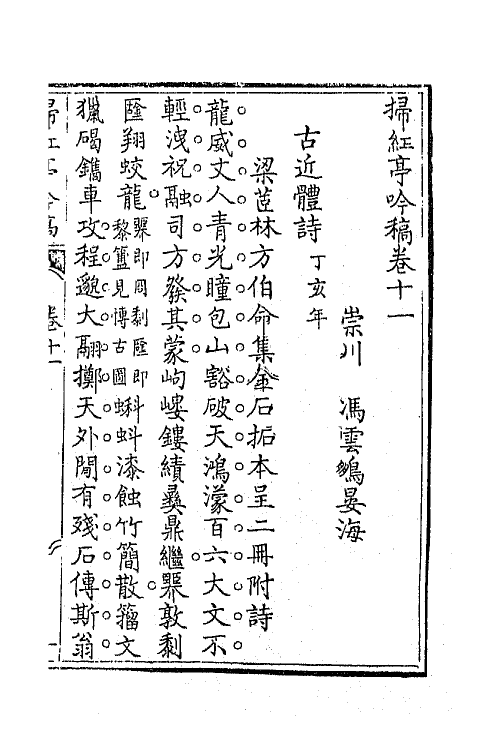 掃紅亭吟稿卷十一
崇川　馮雲鵷晏海
古近體詩 丁亥年
梁茝林方伯命集金石拓本呈二冊附詩
龍威丈人青光瞳包山豁破天鴻濛百六大文不
輕洩祝融司方發其蒙岣嶁鏤績彞鼎繼槼敦剩
匯翔蛟龍 槼即周剩匯即黎簠見博古圖 蝌蚪漆蝕竹簡散籀文
獵碣鐫車攻程邈大翮擲天外閒有殘石傳斯翁
掃紅亭吟稿
卷十一
一